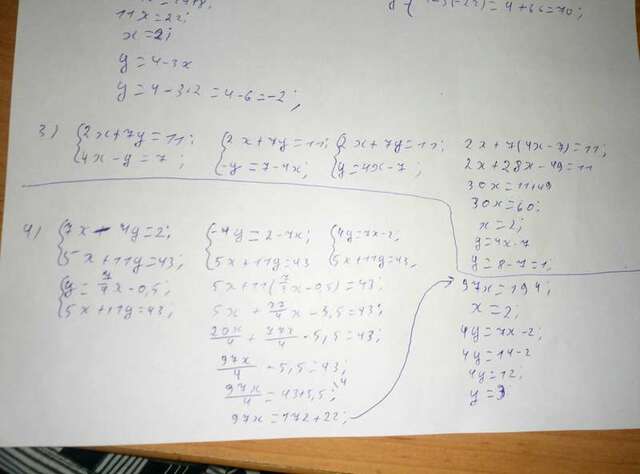 11x=22;
x=2;
y=4-3x
y=4-3·2=4-6=-2;
=4+66=70;
3) {2x+7y=11; {2x+7y=11; {2x+7y=11;
{4x-y=7; {-y=7-4x; {y=4x-7;
2x+7(4x-7)=11;
2x+28x-49=11
30x=11+49
30x=60;
x=2;
y=4x-7
y=8-7=1;
4) {7x-4y=2; {-4y=2-7x; {4y=7x-2;
{5x+11y=43; {5x+11y=43 {5x+11y=43,
{y=7/4x-0,5;
{5x+11y=43;
5x+11(7/4x-0,5)=43;
5x+77/4x-5,5=43;
20x/4+77x/4-5,5=43;
97x/4-5,5=43;
97x/4=43+5,5; ·4
97x=172+22;
97x=194;
x=2;
4y=7x-2;
4y=14-2
4y=12;
y=3